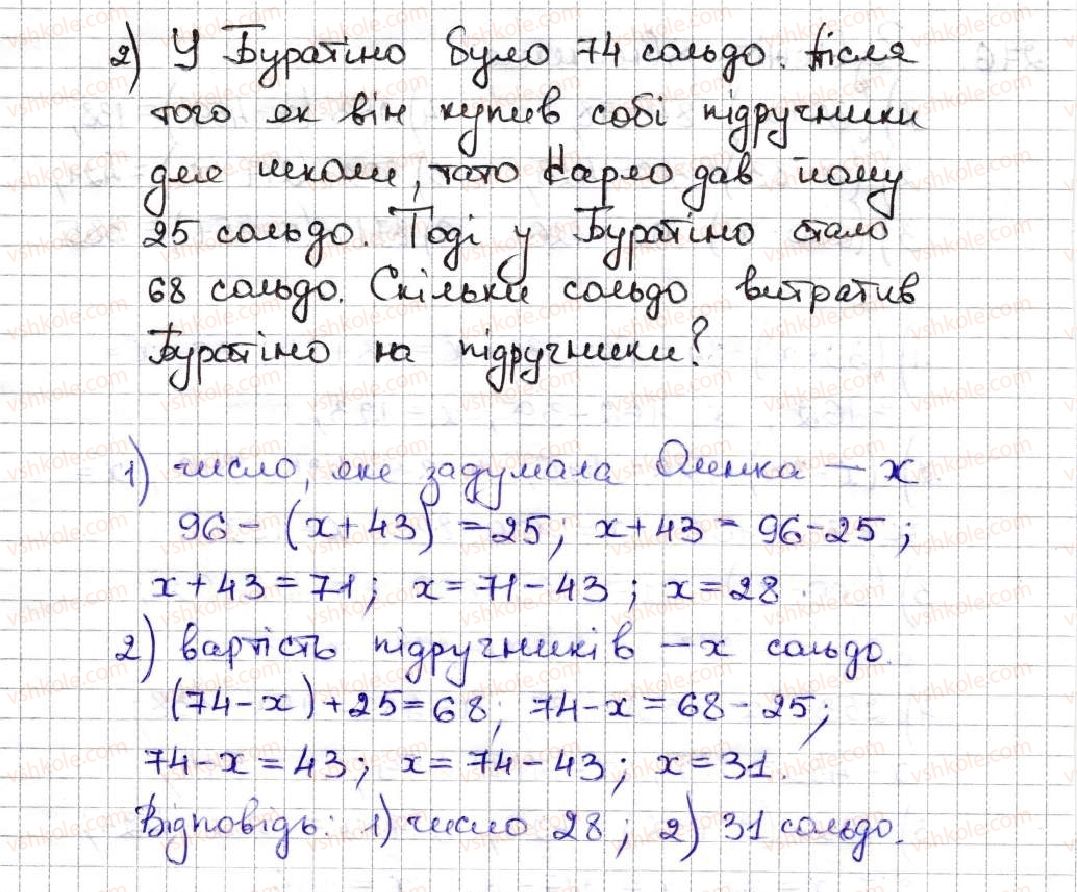 2) У Буратіно було 74 сольдо. Після
того як він купив собі підручники
для школи, тато Карло дав йому
25 сольдо. Тоді у Буратіно стало
68 сольдо. Скільки сольдо витратив
Буратіно на підручники?
1) число, яке задумала Оленка — x.
96 - (x + 43) = 25; x + 43 = 96 - 25;
x + 43 = 71; x = 71 - 43; x = 28.
2) вартість підручників — x сольдо.
(74 - x) + 25 = 68; 74 - x = 68 - 25;
74 - x = 43; x = 74 - 43; x = 31.
Відповідь: 1) число 28; 2) 31 сольдо.